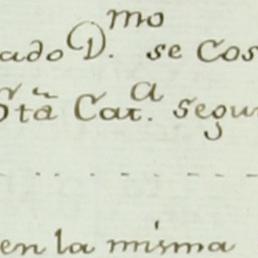 ado D.mo se Cos
Sta Cat.a segu
en la misma